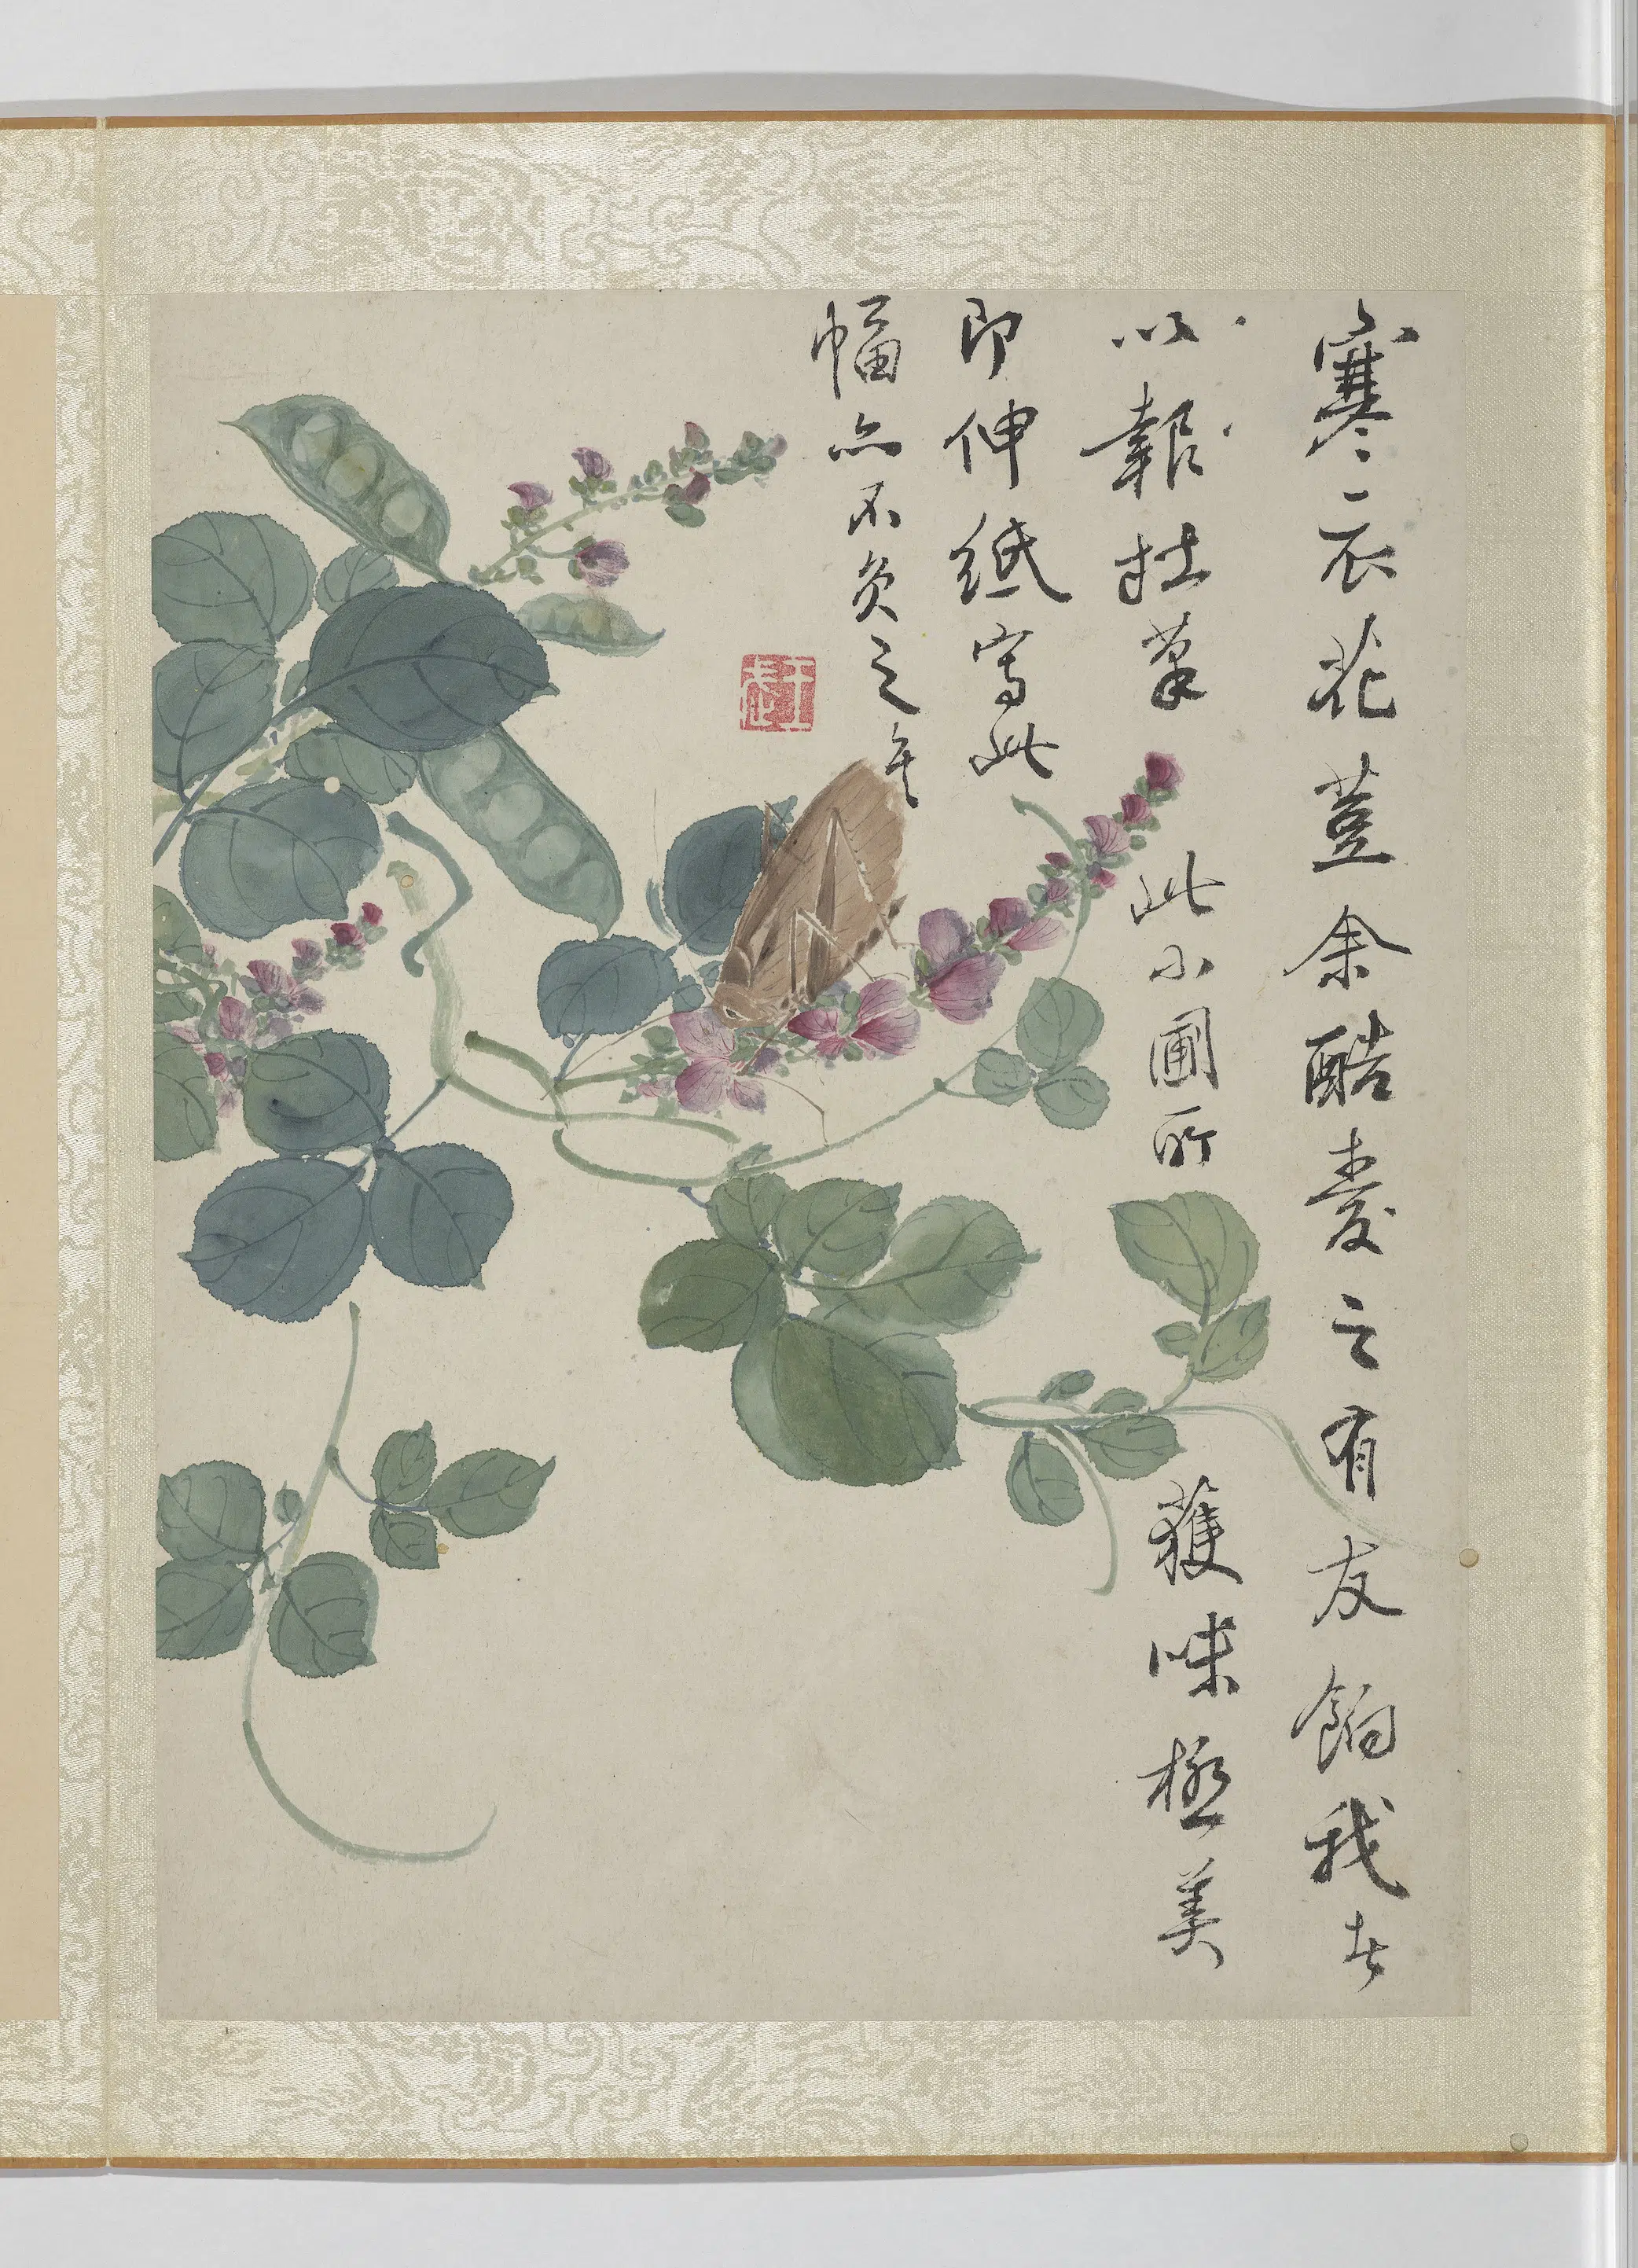 寒衣花荳余酷愛之有友餉我者
以報拙筆此小圃所獲味極美
即伸紙寫此
幅亦不負之